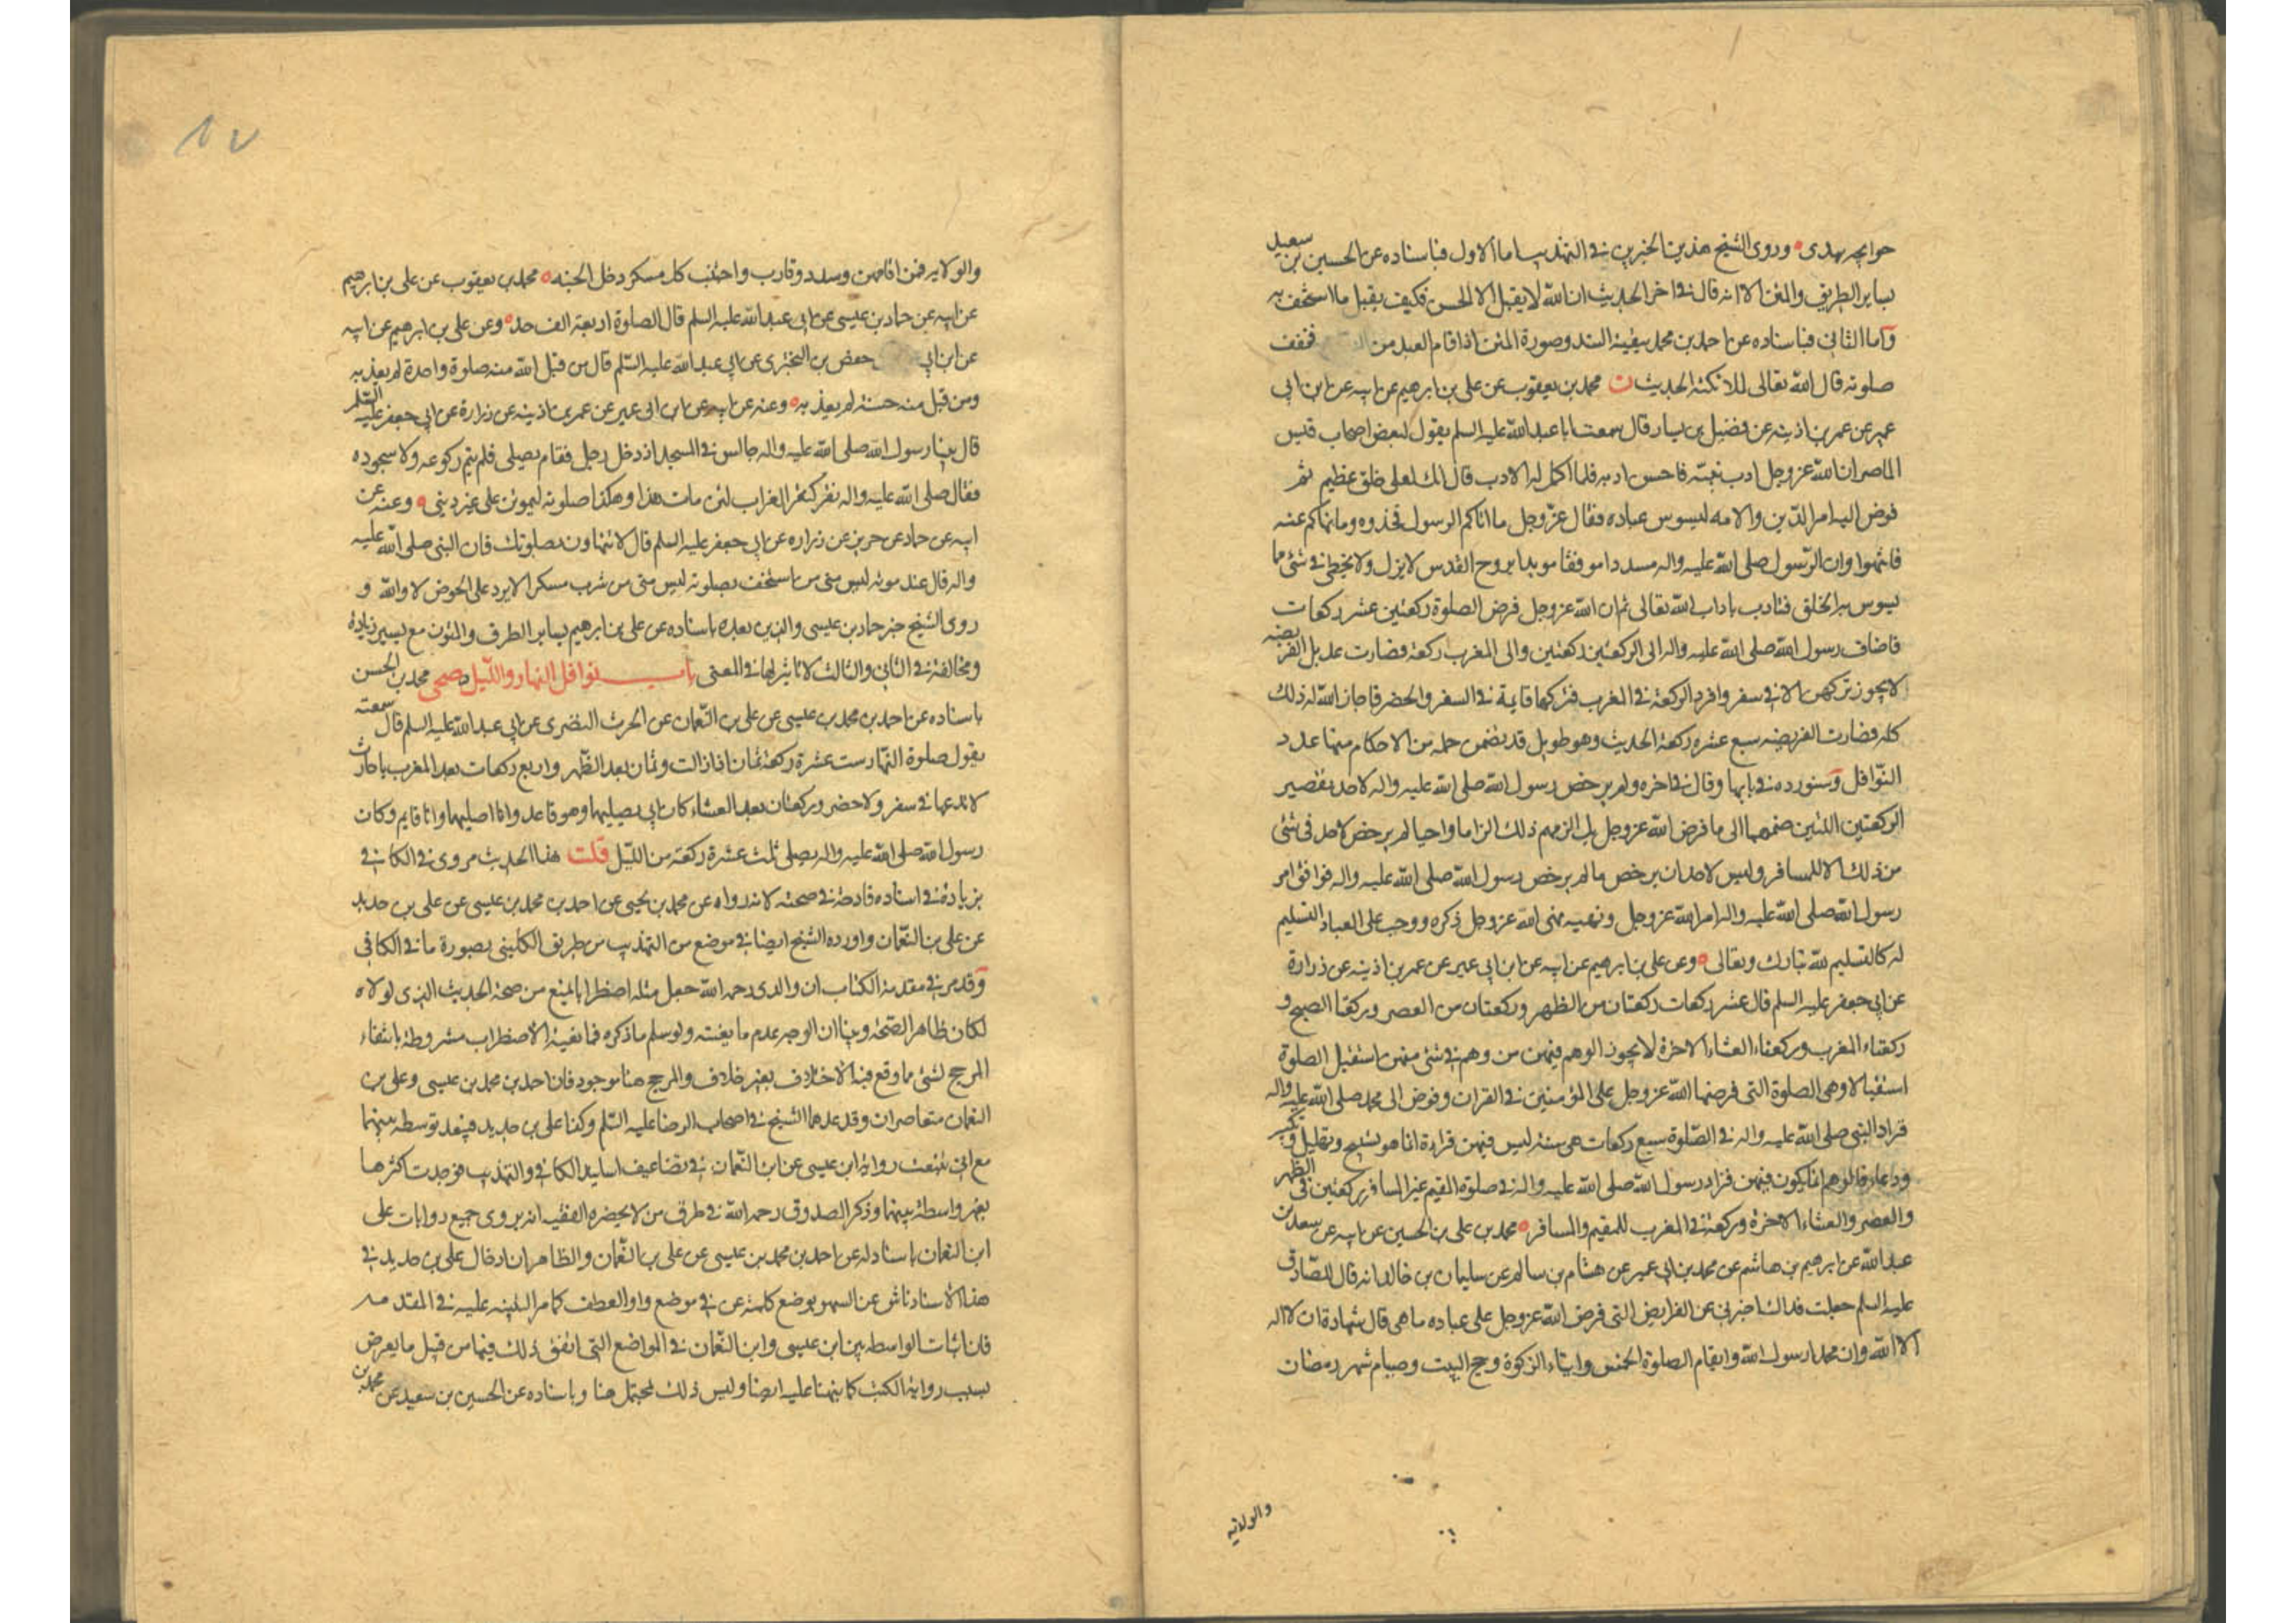 حوايجه بيدى وروى الشيخ هذين الخبرين في التهذيب اما الاول فباسناده عن الحسين بن سعيد
بساير الطريق والمتن الا انه قال في اخر الحديث ان الله لا يقبل الا الحسن فكيف يقبل ما استخف به
واما الثاني فباسناده عن احمد بن محمد ببقية السند وصورة المتن اذا قام العبد من فخفف
صلوته قال الله تعالى لملائكته الحديث ن محمد بن يعقوب عن على بن ابرهيم عن ابيه عن ابن ابي
عمير عن عمر بن اذينه عن فضيل بن يسار قال سمعت ابا عبد الله عليه السلم يقول لبعض اصحاب قيس
الماصر ان الله عز وجل ادب نبيه فاحسن ادبه فلما اكمل له الادب قال انك لعلى خلق عظيم ثم
فوض اليه امر الدين والامه ليسوس عباده فقال عز وجل ما اتاكم الرسول فخذوه وما نهاكم عنه
فانتهوا وان الرسول صلى الله عليه واله مسددا موفقا مويدا بروح القدس لا يزل ولا يخطى في شئ مما
يسوس به الخلق فتادب باداب الله تعالى ثم ان الله عز وجل فرض الصلوة ركعتين عشر ركعات
فاضاف رسول الله صلى الله عليه واله الى الركعتين ركعتين والى المغرب ركعة فصارت عديل الفريضه
لا يجوز تركهن الا في سفر وافرد الركعة في المغرب فتركها قايمة في السفر والحضر فاجاز الله له ذلك
كله فصارت الفريضه سبع عشره ركعة الحديث وهو طويل قد تضمن جمله من الاحكام منها عدد
النوافل وسنورده في بابها وقال في اخره ولم يرخص رسول الله صلى الله عليه واله لاحد تقصير
الركعتين اللتين ضمهما الى ما فرض الله عز وجل بل الزمهم ذلك الزاما واجبا لم يرخص لاحد في شئ
من ذلك الا للمسافر وليس لاحد ان يرخص ما لم يرخص رسول الله صلى الله عليه واله فوافق امر
رسول الله صلى الله عليه واله امر الله عز وجل ونهيه نهى الله عز وجل ذكره ووجب على العباد التسليم
له كالتسليم لله تبارك وتعالى وعن على بن ابرهيم عن ابيه عن ابن ابي عمير عن عمر بن اذينه عن زرارة
عن ابي جعفر عليه السلم قال عشر ركعات ركعتان من الظهر وركعتان من العصر وركعتا الصبح و
ركعتاء المغرب وركعتاء العشاء الاخرة لا يجوز الوهم فيهن من وهم في شئ منهن استقبل الصلوة
استقبالا وهي الصلوة التي فرضها الله عز وجل على المؤمنين في القران وفوض الى محمد صلى الله عليه واله
فزاد النبي صلى الله عليه واله في الصلوة سبع ركعات هي سنة ليس فيهن قراءة انما هو تسبيح وتهليل وتكبير
ودعاء فالوهم انما يكون فيهن فزاد رسول الله صلى الله عليه واله في صلوة المقيم غير المسافر ركعتين في الظهر
والعصر والعشاء الاخرة وركعة في المغرب للمقيم والمسافر محمد بن على بن الحسين عن ابيه عن سعد بن
عبد الله عن ابرهيم بن هاشم عن محمد بن ابي عمير عن هشام بن سالم عن سليمان بن خالد انه قال للصادق
عليه السلم جعلت فداك اخبرني عن الفرايض التي فرض الله عز وجل على عباده ما هي قال شهادة ان لا اله
الا الله وان محمدا رسول الله واقام الصلوة الخمس وايتاء الزكوة وحج البيت وصيام شهر رمضان
والولاية
١٧
والولايه فمن اقامهن وسدد وقارب واجتنب كل مسكر دخل الجنه محمد بن يعقوب عن على بن ابرهيم
عن ابيه عن حماد بن عيسى عن ابي عبد الله عليه السلم قال الصلوة اربعة الف حد وعن على بن ابرهيم عن ابيه
عن ابن ابي حفص بن البختري عن ابي عبد الله عليه السلم قال من قبل الله منه صلوة واحدة لم يعذبه
ومن قبل منه حسنة لم يعذبه وعنه عن ابيه عن ابن ابي عمير عن عمر بن اذينه عن زرارة عن ابي جعفر عليه السلم
قال بينا رسول الله صلى الله عليه واله جالس في المسجد اذ دخل رجل فقام يصلى فلم يتم ركوعه ولا سجوده
فقال صلى الله عليه واله نقر كنقر الغراب لئن مات هذا وهكذا صلوته ليموتن على غير ديني وعنه عن
ابيه عن حماد عن حريز عن زراره عن ابي جعفر عليه السلم قال لا تتهاون بصلوتك فان النبي صلى الله عليه
واله قال عند موته ليس منى من استخف بصلوته ليس منى من شرب مسكرا لا يرد على الحوض لا والله و
روى الشيخ خبر حماد بن عيسى والذين بعده باسناده عن على بن ابرهيم بساير الطرق والمتون مع يسير زيادة
ومخالفة في الثاني والثالث لا تاثير لها في المعنى باب نوافل النهار والليل صحى محمد بن الحسن
باسناده عن احمد بن محمد بن عيسى عن على بن النعمان عن الحرث النضرى عن ابي عبد الله عليه السلم قال سمعته
يقول صلوة النهار ست عشرة ركعة ثمان اذا زالت وثمان بعد الظهر واربع ركعات بعد المغرب يا حارث
لا تدعها في سفر ولا حضر وركعتان بعد العشاء كان ابي يصليهما وهو قاعد وانا اصليهما وانا قايم وكان
رسول الله صلى الله عليه واله يصلى ثلث عشرة ركعة من الليل قلت هذا الحديث مروى في الكافي
بزيادة في اسناده قادحة في صحته لانه رواه عن محمد بن يحيى عن احمد بن محمد بن عيسى عن على بن حديد
عن على بن النعمان واورده الشيخ ايضا في موضع من التهذيب من طريق الكليني بصورة ما في الكافي
وقد مر في مقدمة الكتاب ان والدى رحمه الله جعل مثله اضطرابا يمنع من صحة الحديث الذى لولاه
لكان ظاهر الصحة وبينا ان الوجه عدم ما يعنيه ولو سلم ما ذكره فمانعية الاضطراب مشروطة بانتفاء
المرجح لشئ مما وقع فيه الاختلاف بغير خلاف والمرجح هنا موجود فان احمد بن محمد بن عيسى وعلى بن
النعمان متعاصران وقد عدهما الشيخ في اصحاب الرضا عليه السلم وكذا على بن حديد فيبعد توسطه بينهما
مع اني تتبعت رواية ابن عيسى عن ابن النعمان في تضاعيف اسانيد الكافي والتهذيب فوجدت اكثرها
بغير واسطة بينهما وذكر الصدوق رحمه الله في طرق من لا يحضره الفقيه انه يروى جميع روايات على
ابن النعمان باسناد له عن احمد بن محمد بن عيسى عن على بن النعمان والظاهر ان ادخال على بن حديد في
هذا الاسناد ناش عن السهو بوضع كلمة عن في موضع واو العطف كما مر التنبيه عليه في المقدمه
فان اثبات الواسطه بين ابن عيسى وابن النعمان في المواضع التي اتفق ذلك فيها من قبل ما يعرض
بسبب رواية الكتب كما نبهنا عليه ايضا وليس ذلك بمحتمل هنا وباسناده عن الحسين بن سعيد عن محمد بن